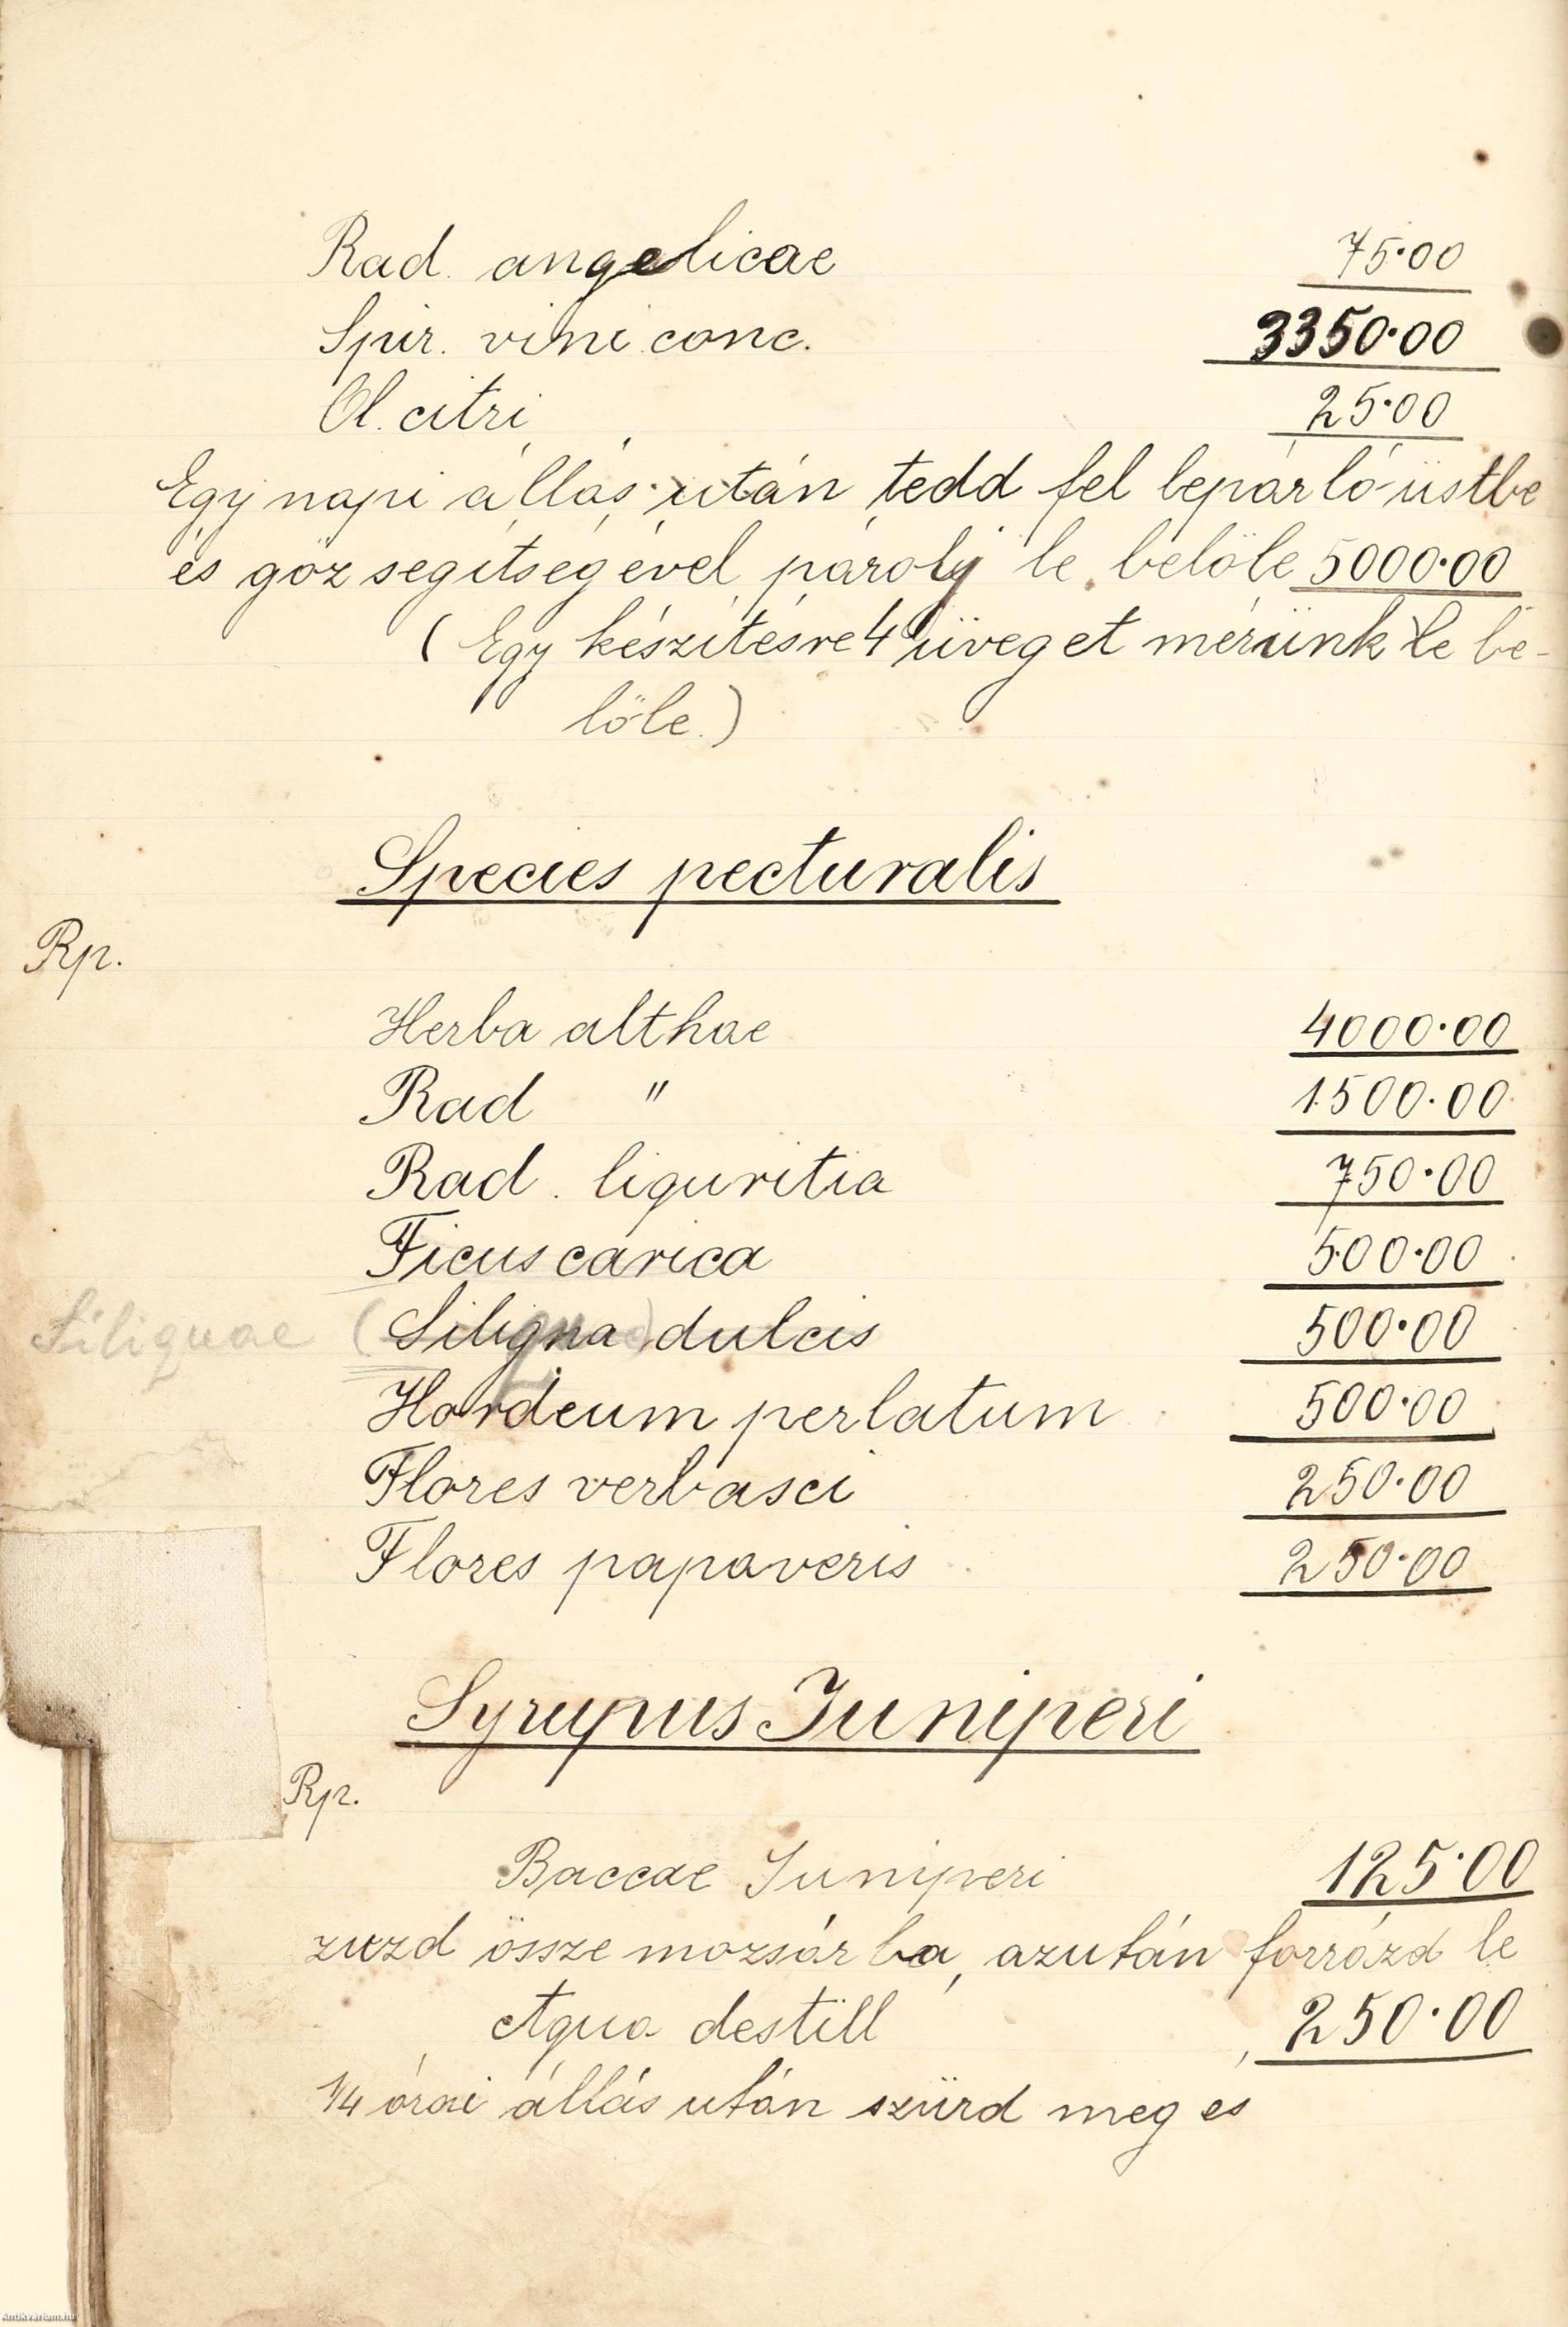 Rad. angelicae 75·00
Spir. vini conc. 3350·00
Ol. citri 25·00
Egy napi állás után tedd fel lepárló-üstbe
és göz segítségével párolj le belöle 5000·00
( Egy készítésre 4 üveget mérünk le be-
löle.)
Species pecturalis
Rp.
Herba althae 4000·00
Rad " 1500·00
Rad. liguritia 750·00
Ficus carica 500·00
Siliquae (Siligna) dulcis 500·00
Hordeum perlatum 500·00
Flores verbasci 250·00
Flores papaveris 250·00
Syrupus Juniperi
Rp.
Baccae Juniperi 125·00
zuzd össze mozsárba, azután forrázd le
Aqua destill 250·00
1/4 órai állás után szürd meg es
Antikvarium.hu